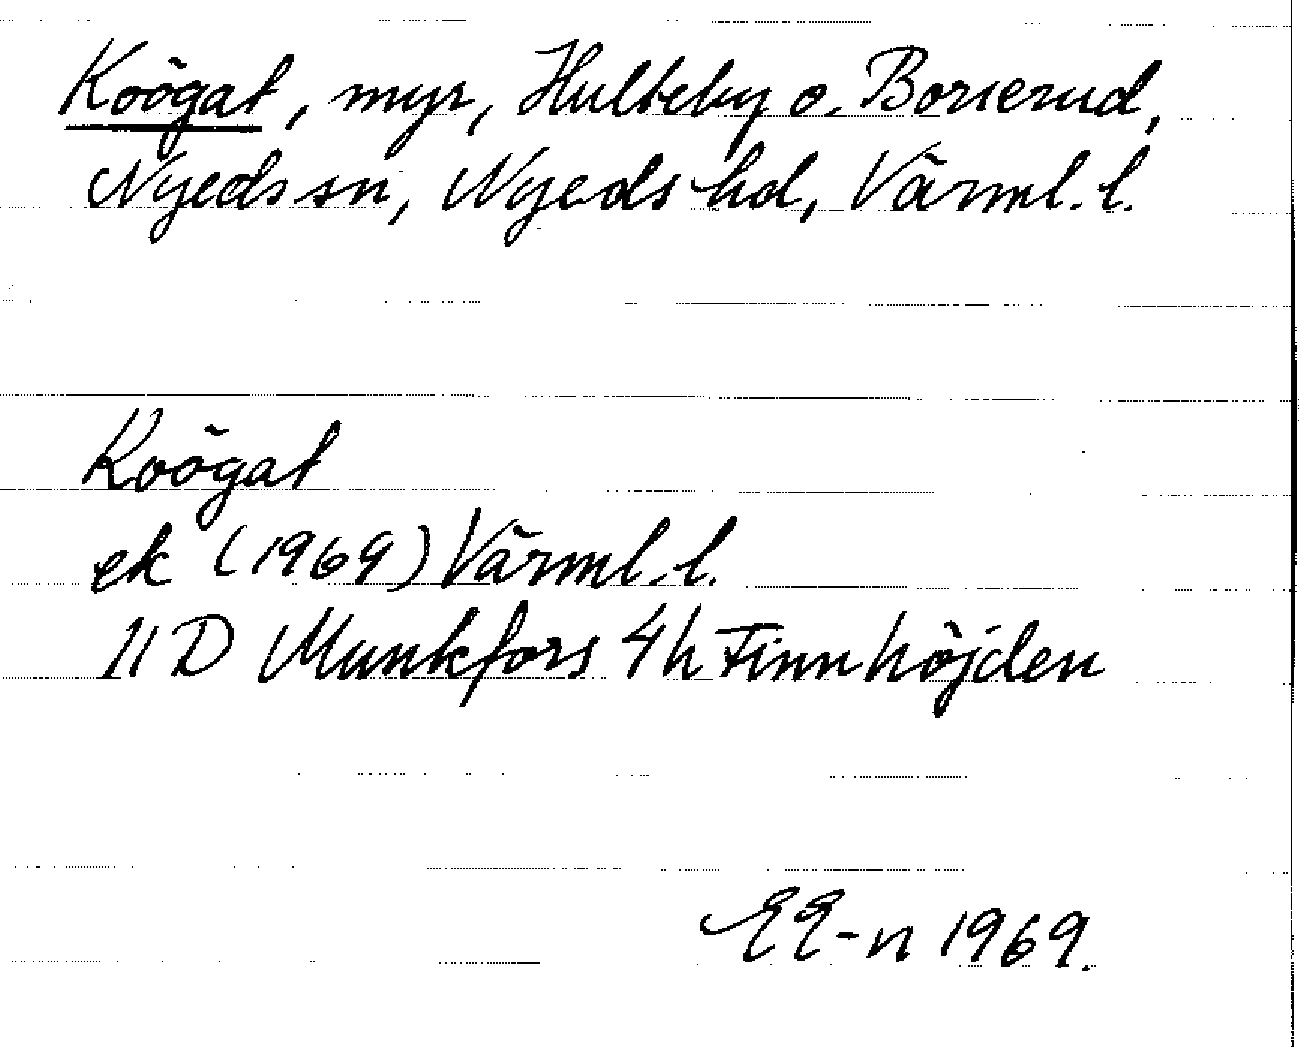 Koögat, myr, Hulteby o. Borserud,
Nyeds sn, Nyeds hd, Värml. l.
Koögat
ek (1969) Värml. l.
11 D Munkfors 4h Finnhöjden
EE-n 1969.